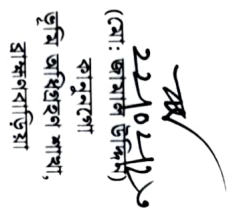 22/02/2৩
(মো: জামাল উদ্দিন)
কানুনগো
ভূমি অধিগ্রহণ শাখা,
ব্রাহ্মণবাড়িয়া